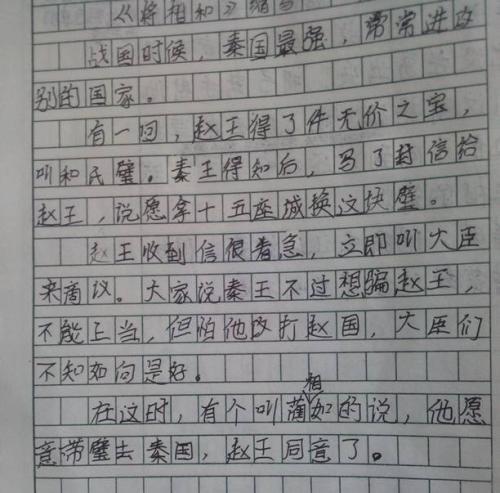 《将相和》缩写
战国时候，秦国最强，常常进攻
别的国家。
有一回，赵王得了件无价之宝，
叫和民璧。秦王得知后，写了封信给
赵王，说愿拿十五座城换这块璧。
赵王收到信很着急，立即叫大臣
来商议。大家说秦王不过想骗赵王，
不能上当，但怕他攻打赵国，大臣们
不知如何是好。
在这时，有个叫蔺相如的说，他愿
意带璧去秦国，赵王同意了。